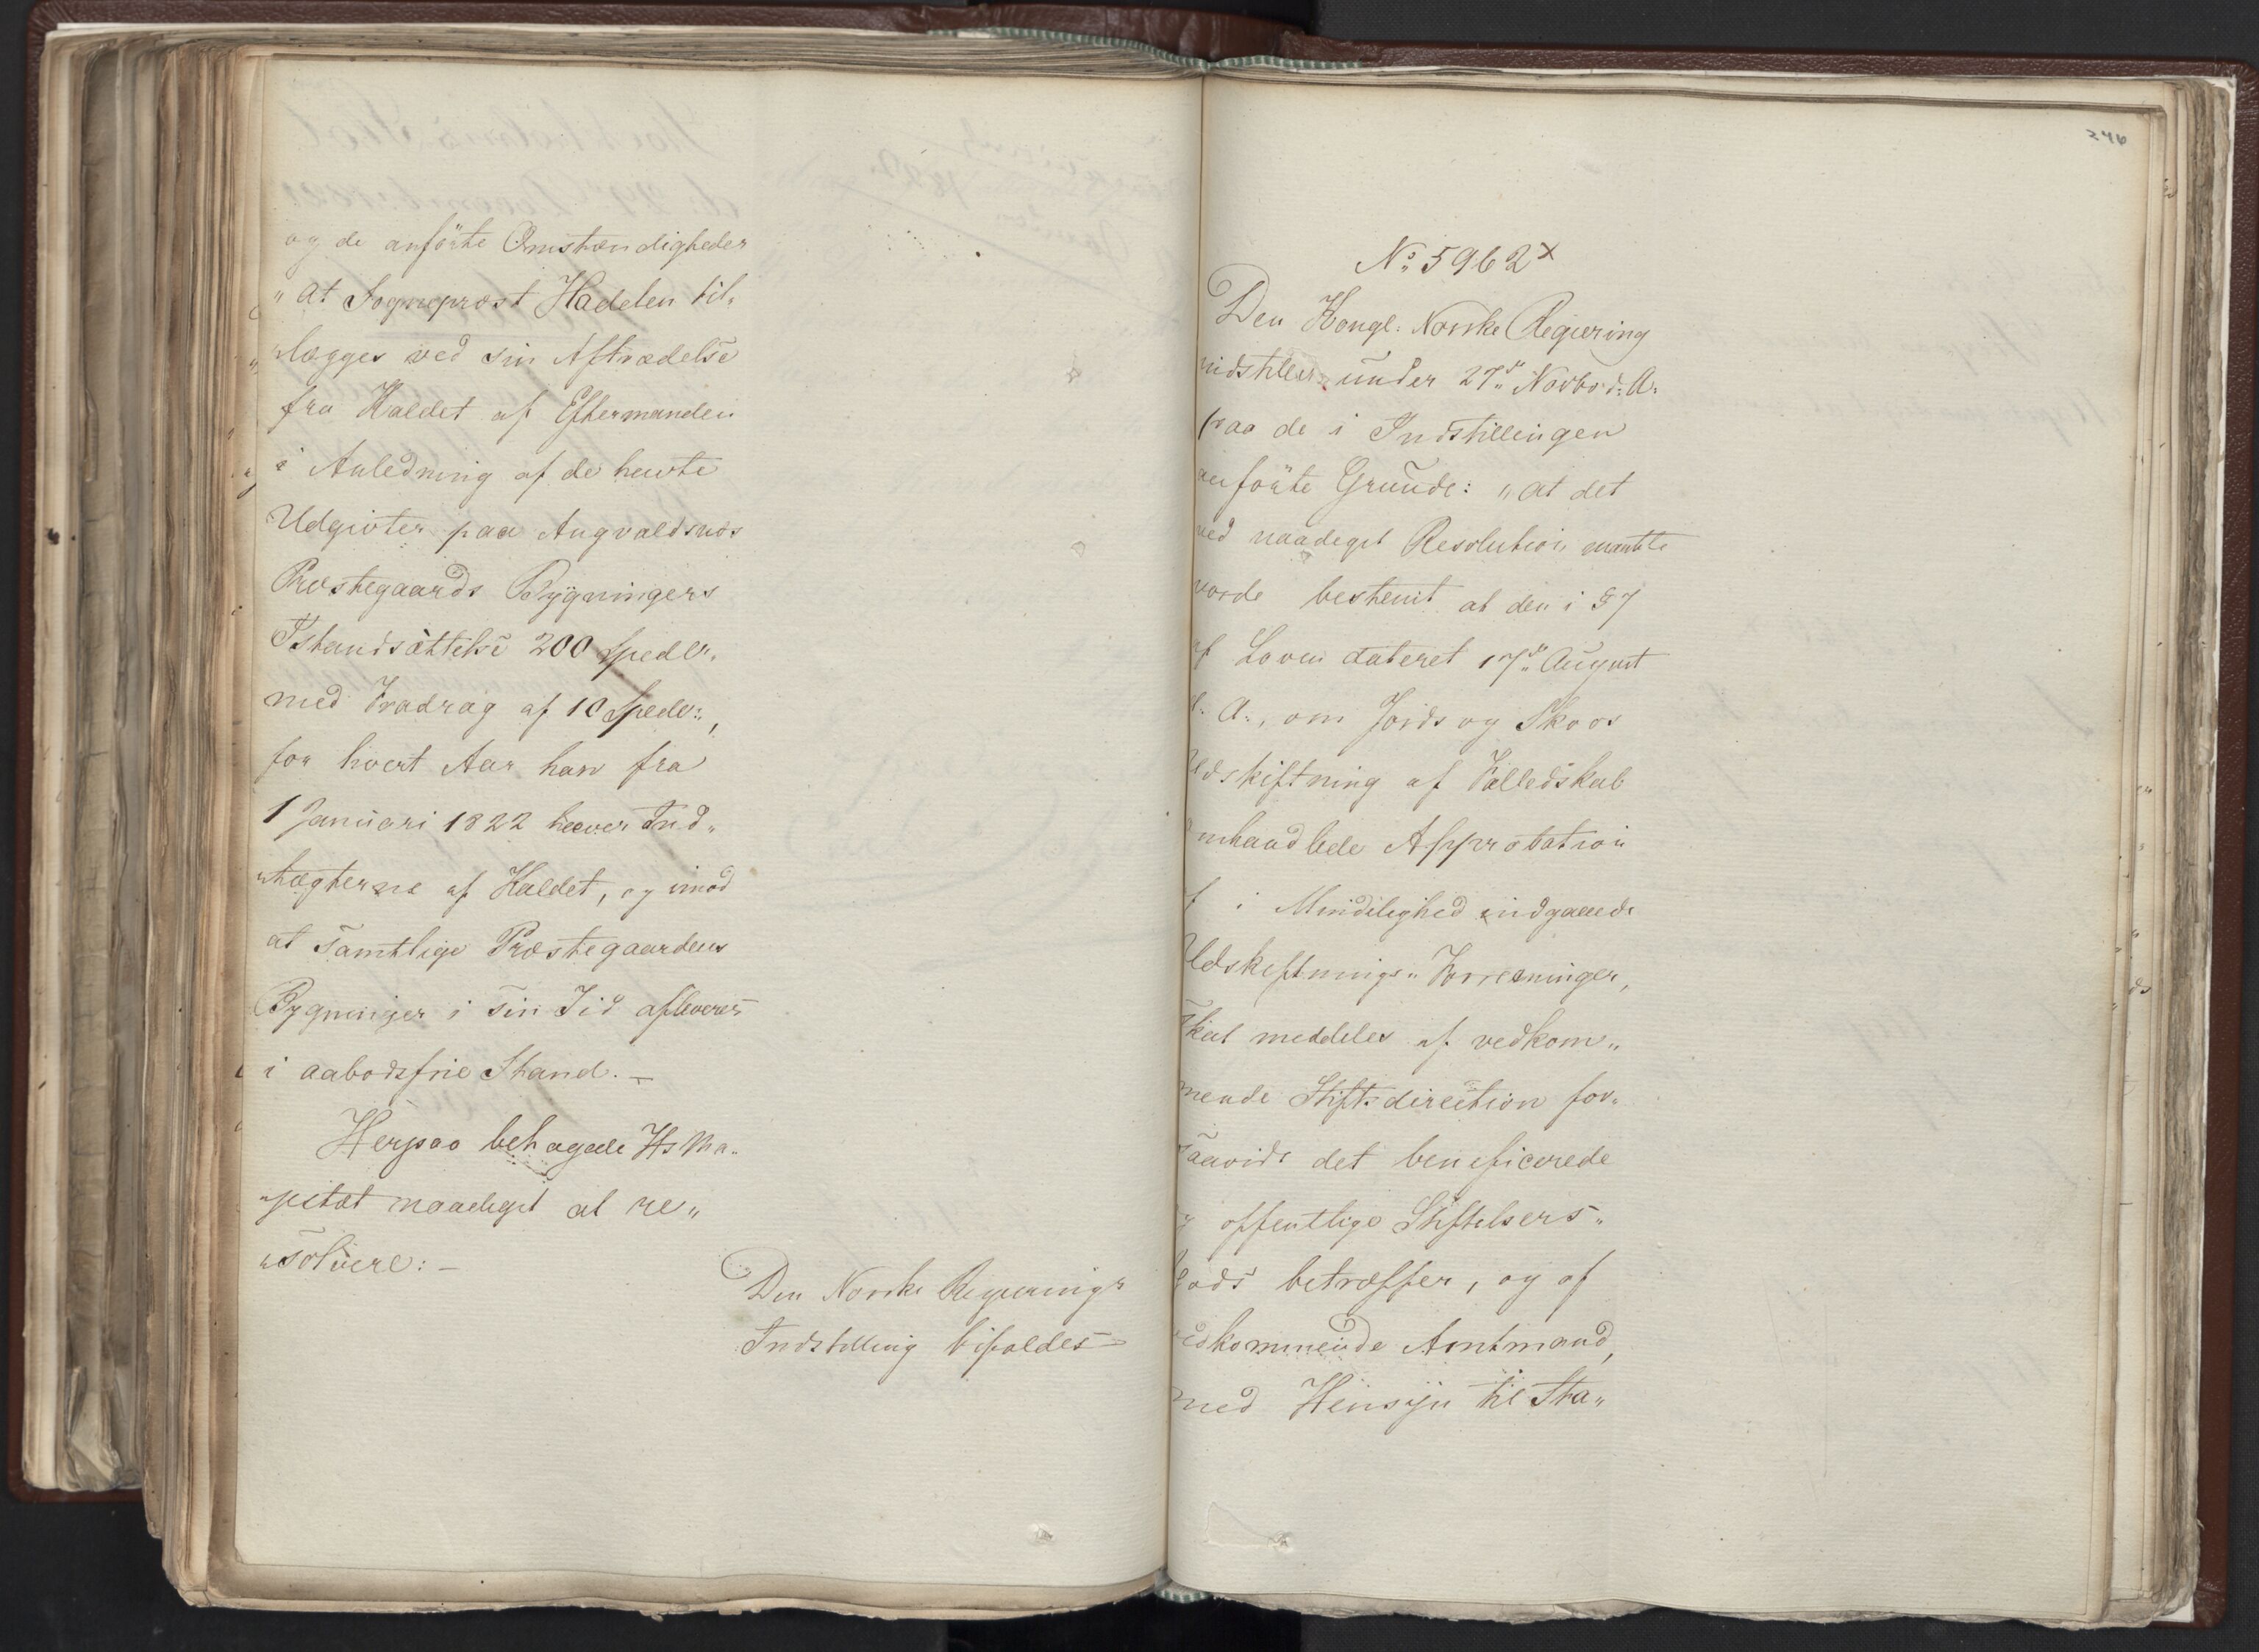 og de anförte Omstændigheder
„At Sognepræst Hadelen til„
„lægges ved sin Aftrædelse
fra Kaldet af Eftermanden
i Anledning af de havte
Udgivter paa Augvaldsnæs
Præstegaards Bygningers
Istandsættelse 200 Spedlr.
med Fradrag af 10 Spedlr:,
for hvert Aar han fra
1 Januari 1822 hæver Ind„
„tægterne af Kaldet, og imod
at samtlige Præstegaardens
Bygninger i sin Tid afleveres
i aabodsfrie Stand. –
Herpaa behagede Hs Ma„
„jestæt naadigst at re„
„solvere: –
Den Norske Regjerings
Indstilling bifaldes
246
No 5962 x
Den Kongl: Norske Regiering
indstiller under 27de Novbr d: A:
paa de i Indstillingen
anförte Grunde: „at det
ved naadigst Resolution maatte
vorde bestemt at den i §7
af Loven dateret 17de August
d: A:, om Jords og Skovs
Udskiftning af Fælledskab
omhandlede Approbation
af i Mindelighed indgaaede
Udskiftnings„Forretninger,
skal meddeles af vedkom„
mende Stiftsdirection for„
saavidt det beneficerede
og offentlige Stiftelsers„
Gods betræffer, og af
vedkommende Amtmand,
med Hensyn til Sta„